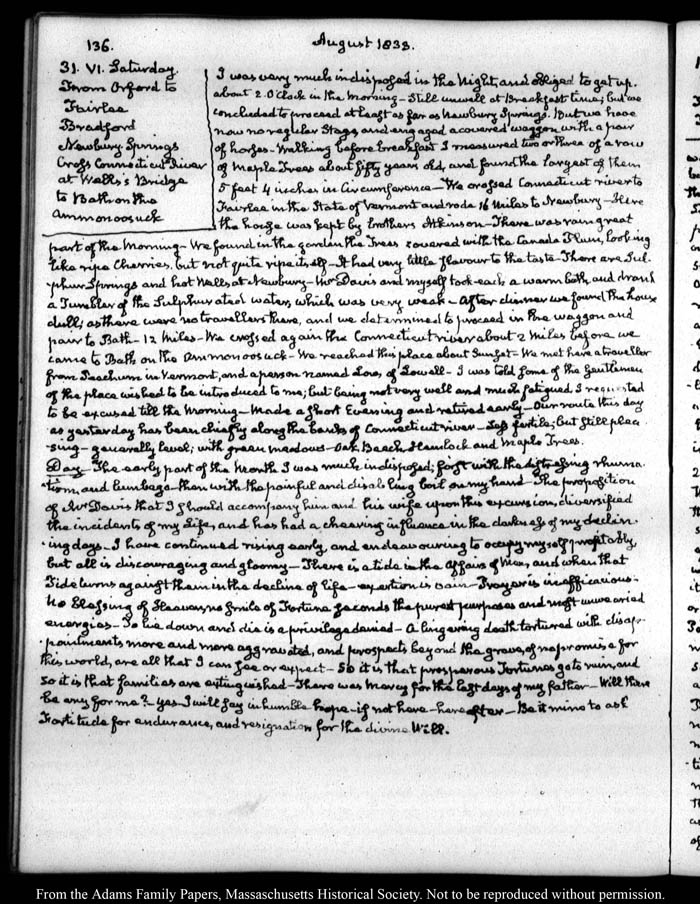 136.
August 1833.
31. VI. Saturday.
From Orford to
Fairlee
Bradford
Newbury Springs
Cross Connecticut River
at Wells's Bridge
to Bath on the
Ammonoosuck
I was very much indisposed in the Night, and obliged to get up.
about 2. O'Clock in the morning – Still unwell at Breakfast time; but we
concluded to proceed at least as far as Newbury Springs. But we have
now no regular Stage, and engaged a covered waggon with a pair
of horses – Walking before breakfast I measured two or three of a row
of Maple Trees about fifty years old, and found the largest of them
5 feet 4 inches in Circumference – We crossed Connecticut river to
Fairlee in the State of Vermont and rode 16 Miles to Newbury – Here
the house was kept by brothers Atkinson – There was rain great
part of the Morning – We found in the garden the Trees covered with the Canada Plum, looking
like ripe Cherries, but not quite ripe itself – It had very little flavour to the taste – There are Sul-
-phur Springs and hot Wells at Newbury – Mr Davis and myself took each a warm bath, and drank
a Tumbler of the Sulphurated water, which was very weak – After dinner we found the house
dull; as there were no travellers there, and we determined to proceed in the waggon and
pair to Bath – 12 Miles – We crossed again the Connecticut river about 2 Miles before we
came to Bath on the Ammonoosuck – We reached this place about Sunset – We met here a traveller
from Peachum in Vermont, and a person named Low, of Lowell – I was told some of the Gentlemen
of the place wished to be introduced to me; but being not very well and much fatigued I requested
to be excused till the Morning – Made a short Evening and retired early – Our route this day
as yesterday has been chiefly along the banks of Connecticut river – Less fertile; but still plea-
-sing – generally level; with green meadows – Oak Beach Hemlock and Maple Trees.
Day – The early part of the Month I was much indisposed; first with the distressing rheuma-
-tism, and lumbago – then with the painful and disabling boil on my hand – The proposition
of Mr Davis that I should accompany him and his wife upon this excursion, diversified
the incidents of my Life, and has had a cheering influence in the darkness of my declin-
-ing days – I have continued rising early, and endeavouring to occupy myself profitably,
but all is discouraging and gloomy – There is a tide in the affairs of Men, and when that
Tide turns against them in the decline of life – exertion is vain – Prayer is inefficacious –
No blessing of Heaven, no smile of Fortune seconds the purest purposes and most unwearied
energies – To lie down and die is a privilege denied – A lingering death tortured with disap-
-pointments more and more aggravated, and prospects beyond the grave, of no promise for
this world, are all that I can see or expect – So it is that prosperous Fortunes go to ruin, and
so it is that families are extinguished – There was Mercy for the last days of my father – Will there
be any for me? – Yes – I will say in humble hope – if not here – hereafter – Be it mine to ask
Fortitude for endurance, and resignation for the divine Will.
From the Adams Family Papers, Massachusetts Historical Society. Not to be reproduced without permission.